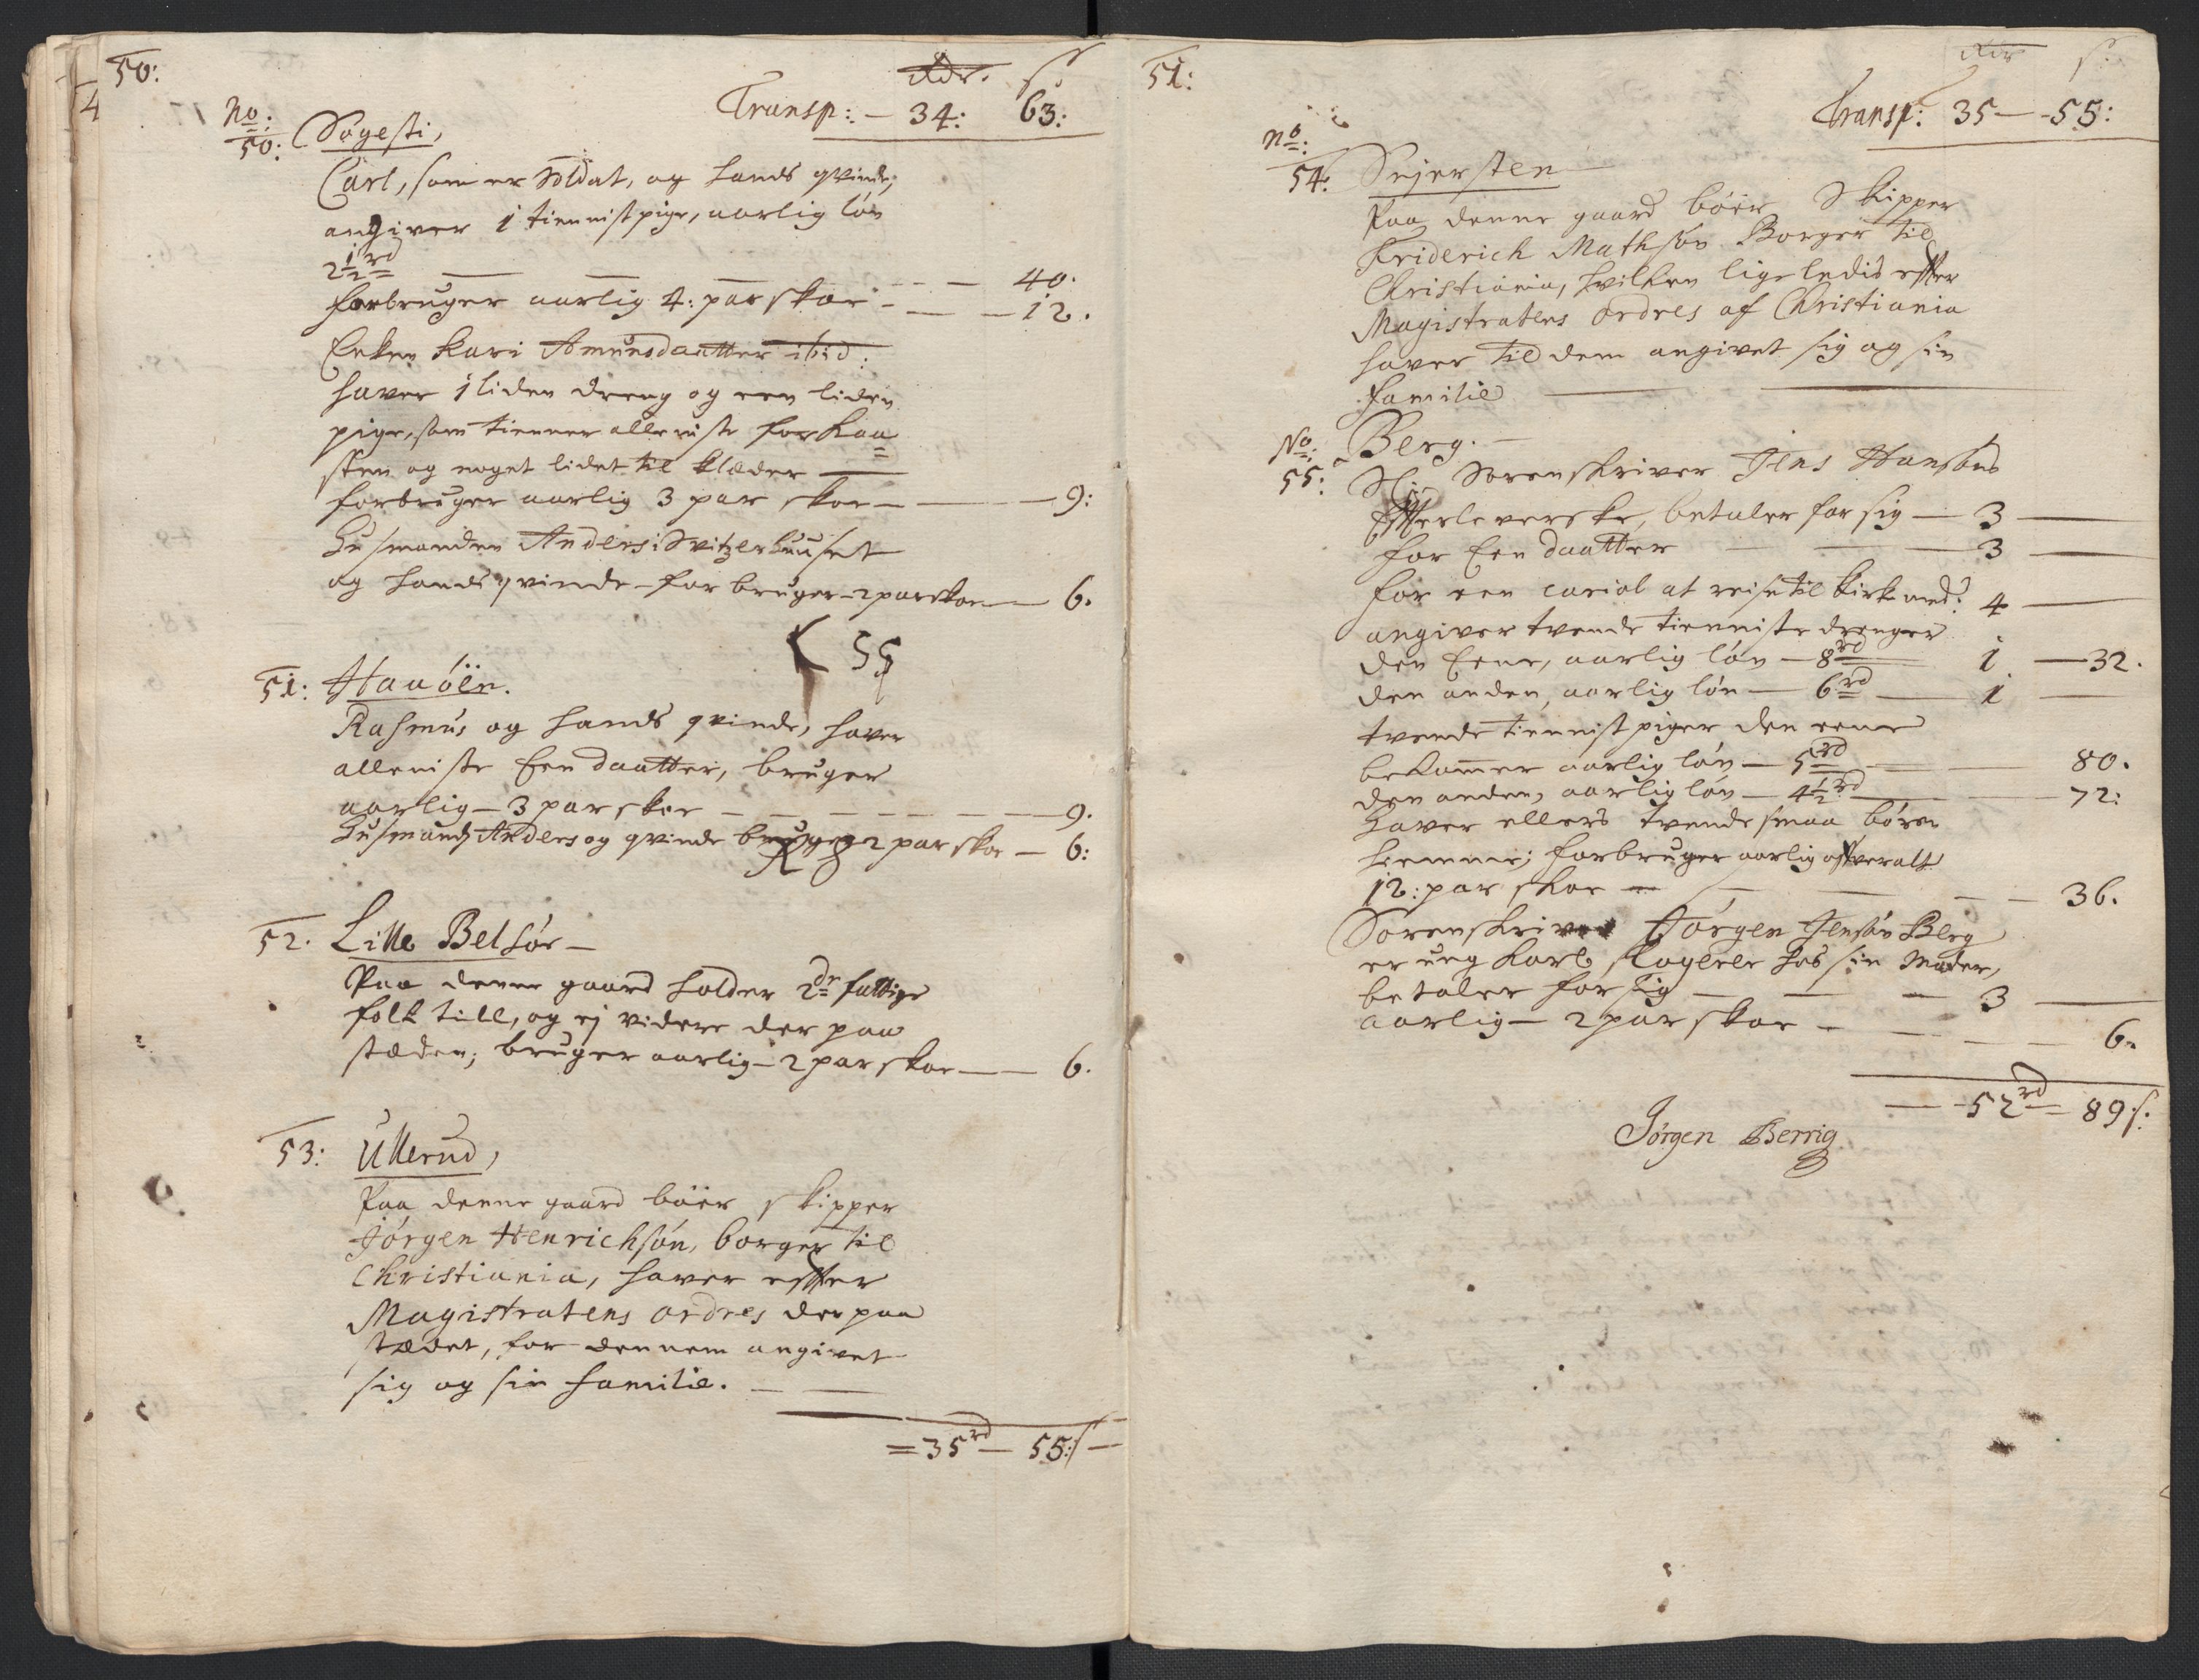 50:
Rdr. s.
Transp: — 34: 63:
No:
50: Sogesti,
Carl, som er Soldat, og hands qvinde,
angiver 1 tiennistpige, aarlig løn
2½ rd — — — — 40.
forbruger aarlig 4: par skoe — — 12.
Enken Kari Amundsdaatter ibid:
haver 1 liden dreng og een liden
pige, som tienner alleniste for Kaa=
sten og noget lidet til klæder —
forbruger aarlig 3 par skoe — — 9:
Husmanden Anders i Svitzerhuuset
og hands qvinde — forbruger — 2 par skoe — 6.
55
51: Haaöen.
Rasmus og hands qvinde, haver
alleniste Een daatter, bruger
aarlig — 3 par skoe — — — — 9.
Husmand Anders og qvinde bruger 2 par skoe — 6:
52. Lille Belhør —
Paa denne gaard holder 2de fattige
folk till, og ej videre der paa
stæden; bruger aarlig — 2 par skoe — — 6.
53: Ullerud,
Paa denne gaard böer skipper
Jörgen Henrichsøn, borger til
Christiania, haver effter
Magistratens ordres der paa
stædet, for dennem angivet
sig og sin familie. — —
= 35 rd — 55: s —
51:
Rdr s:
Transp: 35 — 55:
No:
54: Sejersten
Paa denne gaard böer Skipper
Friderich Mathsøn Borger til
Christiania, hvilken ligeledis effter
Magistratens ordres af Christiania
haver til dem angivet sig og sin
familie — —
No: Berg. —
55: Sl: Sorenskriver Jens Hansøns
Effterleverske, betaler for sig — 3 —
for Een daatter — — — 3 —
for een cariol at reise til kirke med: 4 —
angiver tvende tienniste drenger
den Eene, aarlig løn — 8 rd — 1 — 32.
den anden, aarlig løn — 6 rd — 1 —
tvende tiennist piger den eene
bekommer aarlig løn — 5 rd — — 80.
den anden, aarlig løn — 4½ rd — — 72:
Haver ellers tvende smaa børn
hiemme; forbruger aarlig offveralt
12: par skoe — — — — 36.
Sorenskriver Jörgen Jensøn Berg
er ung Karl, logerer hos sin Moder,
betaler for sig — — — 3 —
aarlig — 2 par skoe — — — 6.
— 52 rd = 89 s:
Jörgen Berrig